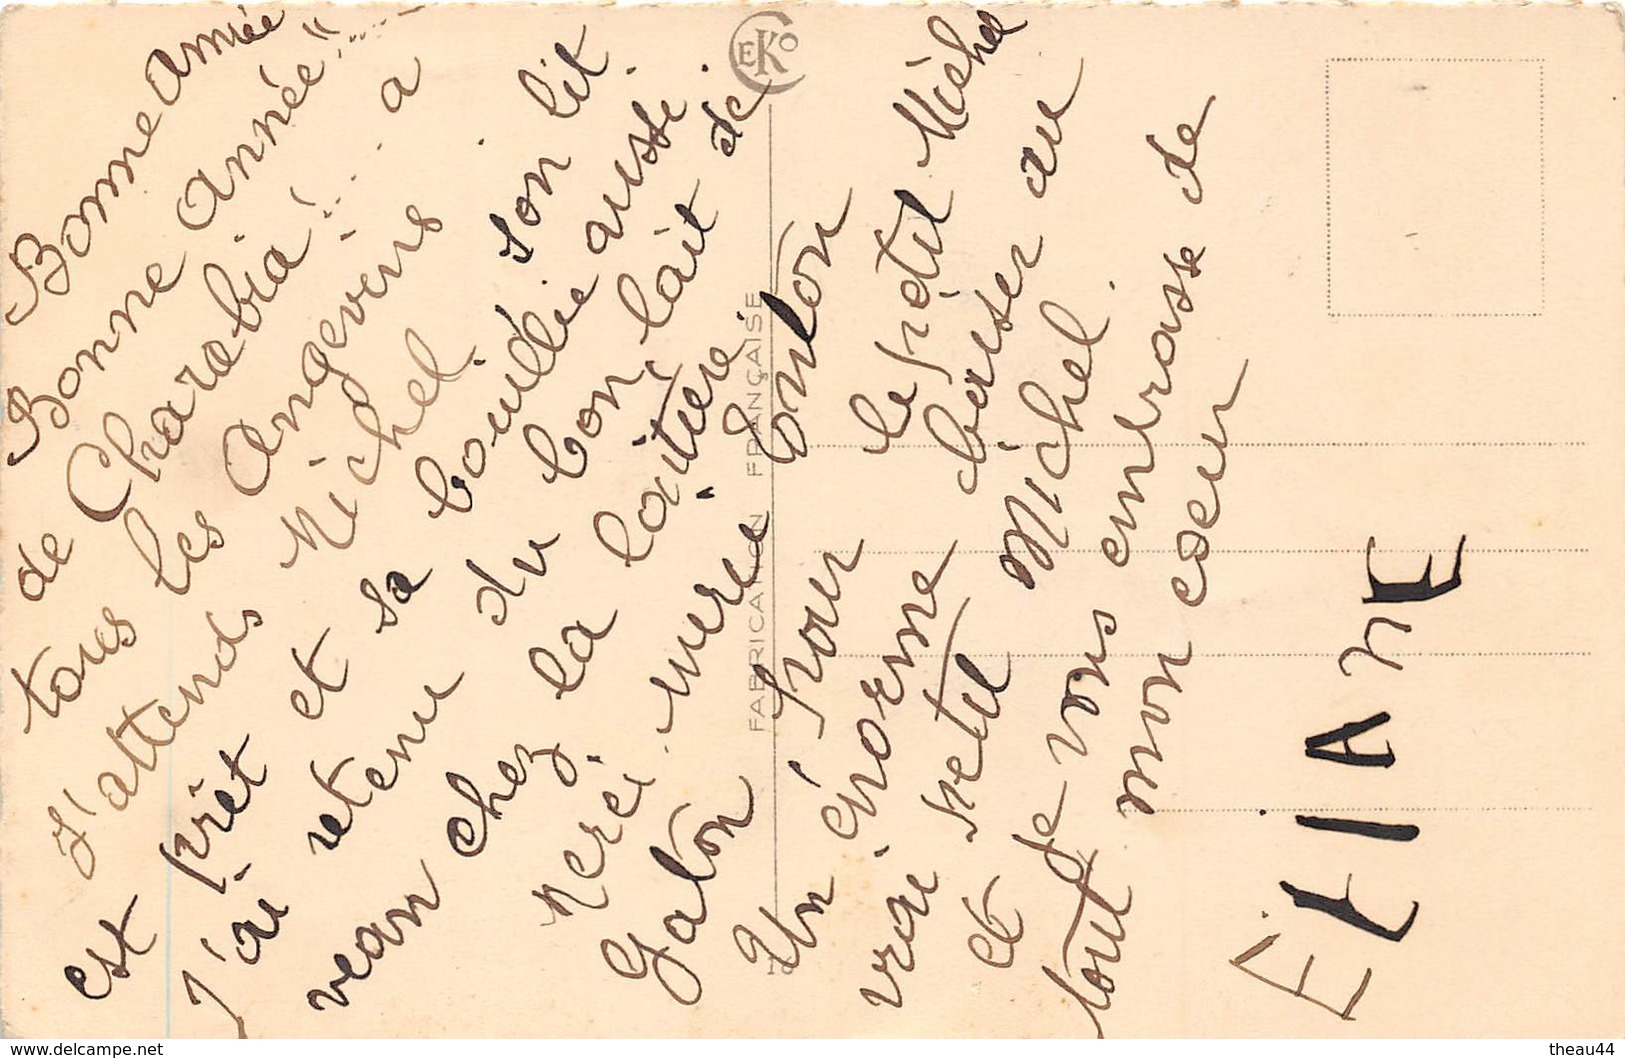 Bonne Année
Bonne année"
de Charabia! .. a
tous les angevins.
J'attends Michel. son lit
est prêt et sa bouillie aussi.
J'ai retenu du bon lait de
veau chez la laitière
Merci mère Tonton
Gaton pour le petit Michel
Un énorme baiser au
vrai petit Michel.
et je vous embrasse de
tout mon coeur
ELIANE
CEKO
FABRICATION FRANÇAISE
www.delcampe.net
theau44